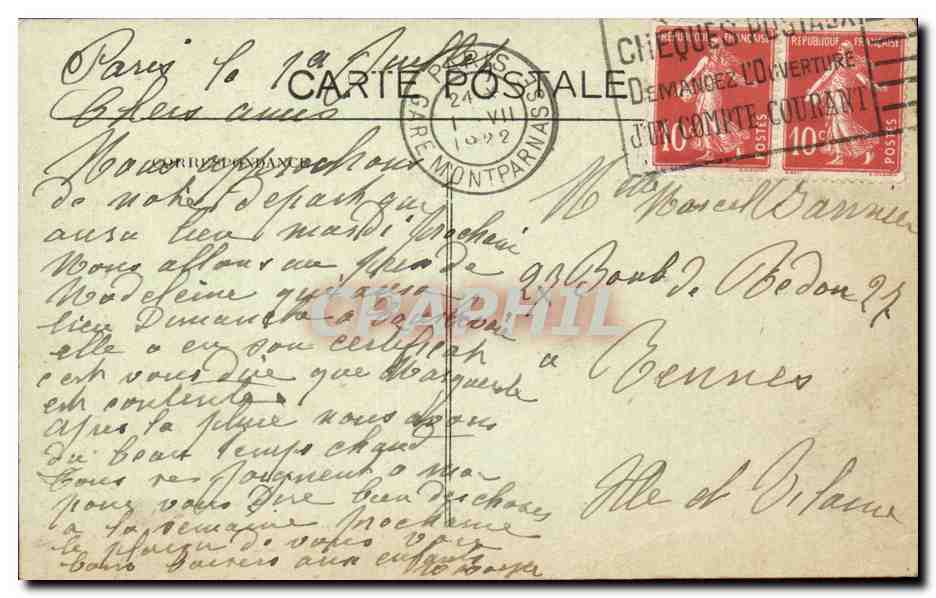 Paris le 1er Juillet
Chers amis
CARTE POSTALE
CORRESPONDANCE
Nous approchons
de notre depart qui
aura lieu mardi prochain
Nous allons au prix de
Madeleine qui aura
lieu Dimanche a
elle a eu son certificat
c'est vous dire que Marguerite
est contente
apres la pluie nous avons
du beau temps chaud
Tous se joignent a moi
pour vous dire bien des choses
a la semaine prochaine
le plaisir de vous voir
bons baisers aux enfants
PARIS
GARE MONTPARNASSE
24
1 VII
1922
CHEQUES POSTAUX
DEMANDEZ L'OUVERTURE
D'UN COMPTE COURANT
REPUBLIQUE FRANÇAISE
10c
POSTES
REPUBLIQUE FRANÇAISE
10c
POSTES
Marcel
93 Boul de Redon 27
a
Rennes
Ille et Vilaine
CPAPHIL